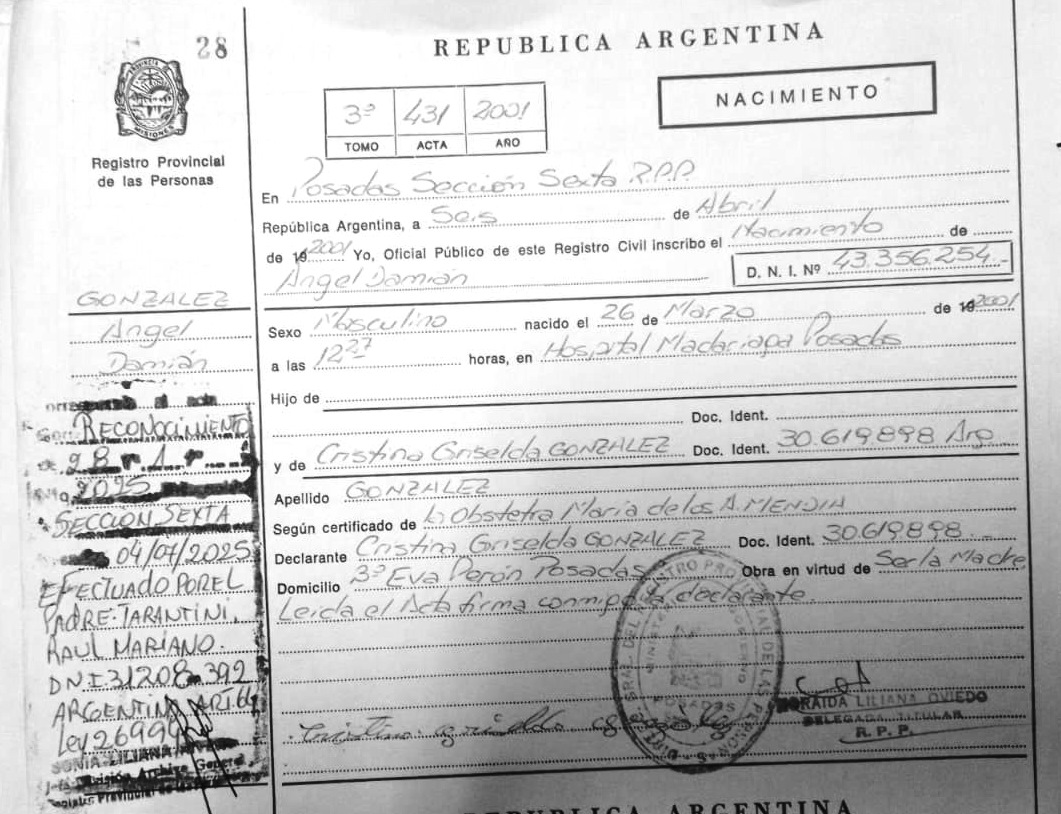 28
PROVINCIA
MISIONES
Registro Provincial
de las Personas
REPUBLICA ARGENTINA
NACIMIENTO
3º 431 2001
TOMO ACTA AÑO
En Posadas Sección Sexta R.P.P.
República Argentina, a Seis de Abril
de 2001 Yo, Oficial Público de este Registro Civil inscribo el Nacimiento de
Angel Damián D. N. I. Nº 43.356.254.-
Sexo Masculino nacido el 26 de Marzo de 2001
a las 12 27 horas, en Hospital Madariaga Posadas
Hijo de
Doc. Ident.
y de Cristina Griselda GONZALEZ Doc. Ident. 30.619.898 Arg
Apellido GONZALEZ
Según certificado de la Obstetra Maria de los A. MENDIA
Declarante Cristina Griselda GONZALEZ Doc. Ident. 30.619.898.-
Domicilio Bº Eva Perón Posadas Obra en virtud de Ser la Madre
Leida el Acta firma conmigo la declarante.
GONZALEZ
Angel
Damián
al acta
RECONOCIMIENTO
28
2025
SECCION SEXTA
04/07/2025
EFECTUADO POR EL
PADRE: TARANTINI,
RAUL MARIANO.
DNI 31208.392
ARGENTINA ART. 64
Ley 26994
SONIA LILIANA
División Archivo General
Registro Provincial de las
POSADAS
ZORAIDA LILIANA OVIEDO
DELEGADA TITULAR
R. P. P.
REPUBLICA ARGENTINA